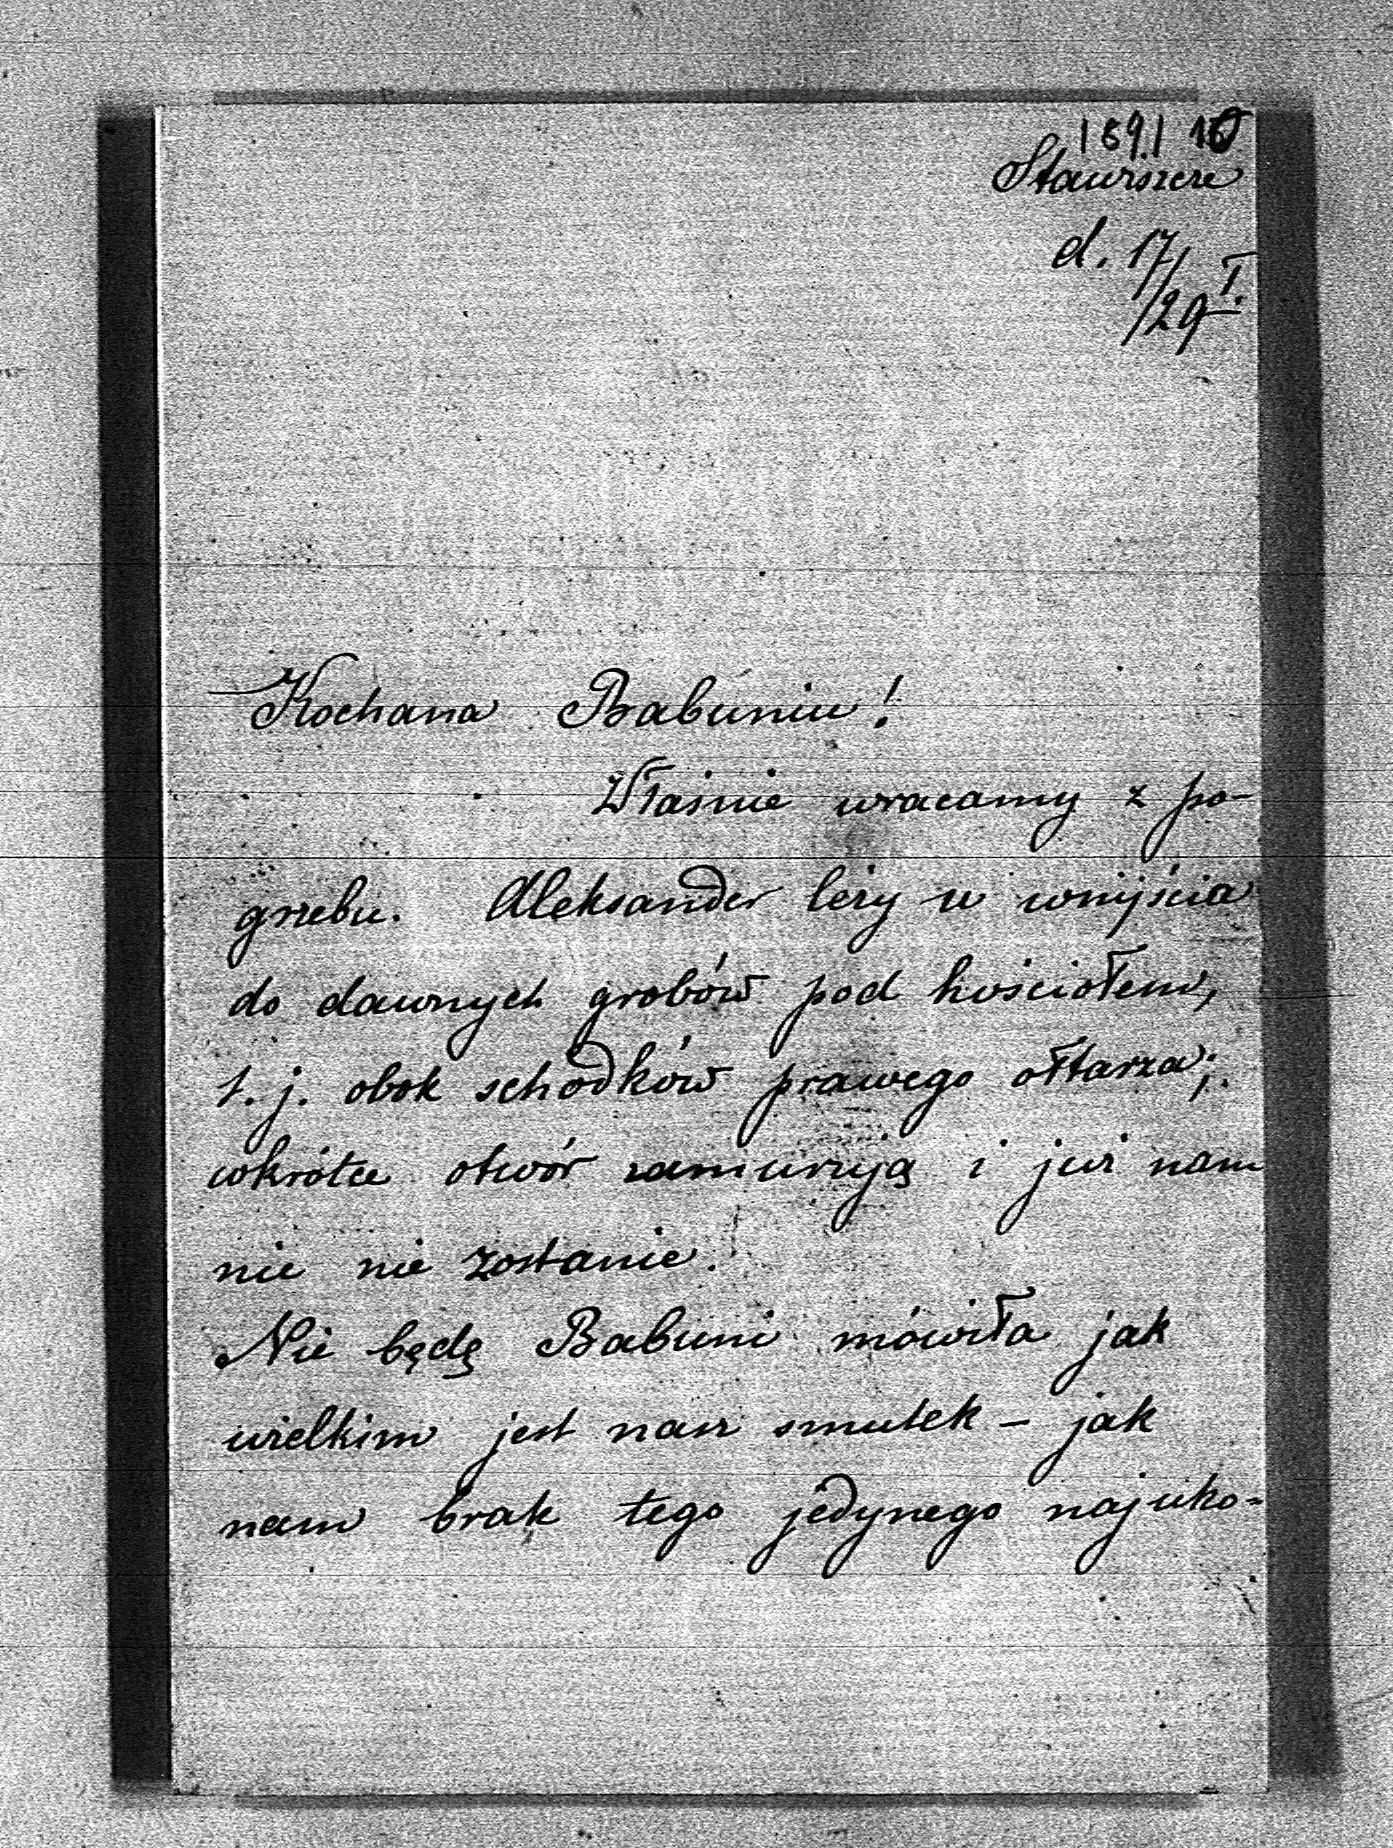 1891 10
Stawiszcze
d. 17/29 I.
Kochana Babuniu!
Właśnie wracamy z po-
grzebu. Aleksander leży u wnijścia
do dawnych grobów pod kościołem,
t. j. obok schodków prawego ołtarza;
wkrótce otwór zamurują i już nam
nic nie zostanie.
Nie będę Babuni mówiła jak
wielkim jest nasz smutek – jak
nam brak tego jedynego najuko-